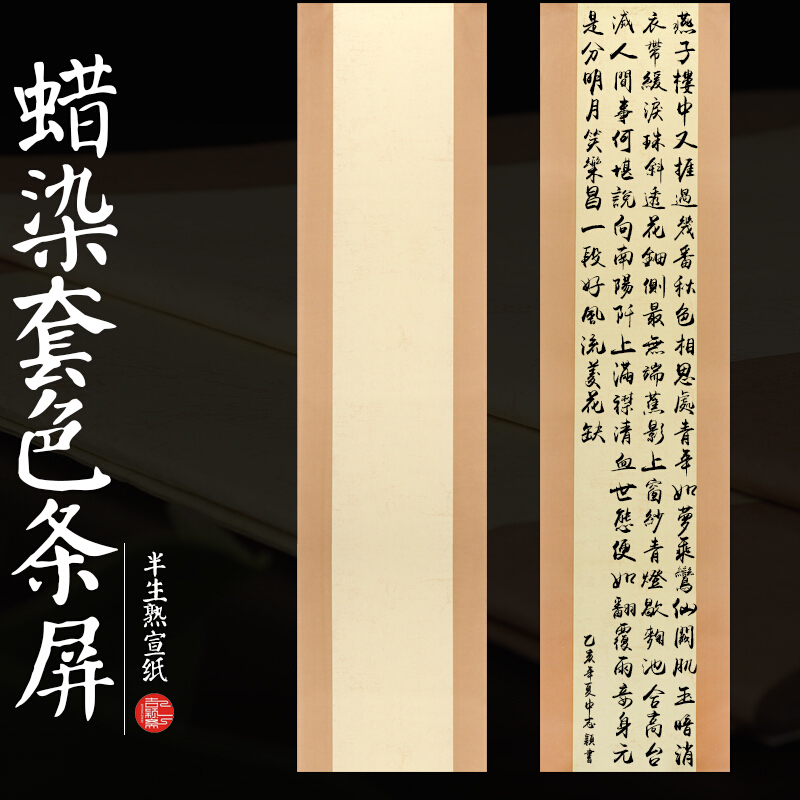 蜡染套色条屏
半生熟宣纸
燕子樓中又捱過幾番秋色相思處青年如夢乘鸞仙闕肌玉暗消
衣帶緩淚珠斜透花鈿側最無端蕉影上窗紗青燈歇麯池合高台
滅人間事何堪說向南陽阡上滿襟清血世態便如翻覆雨妾身元
是分明月笑樂昌一段好風流菱花缺
乙亥年夏中志穎書